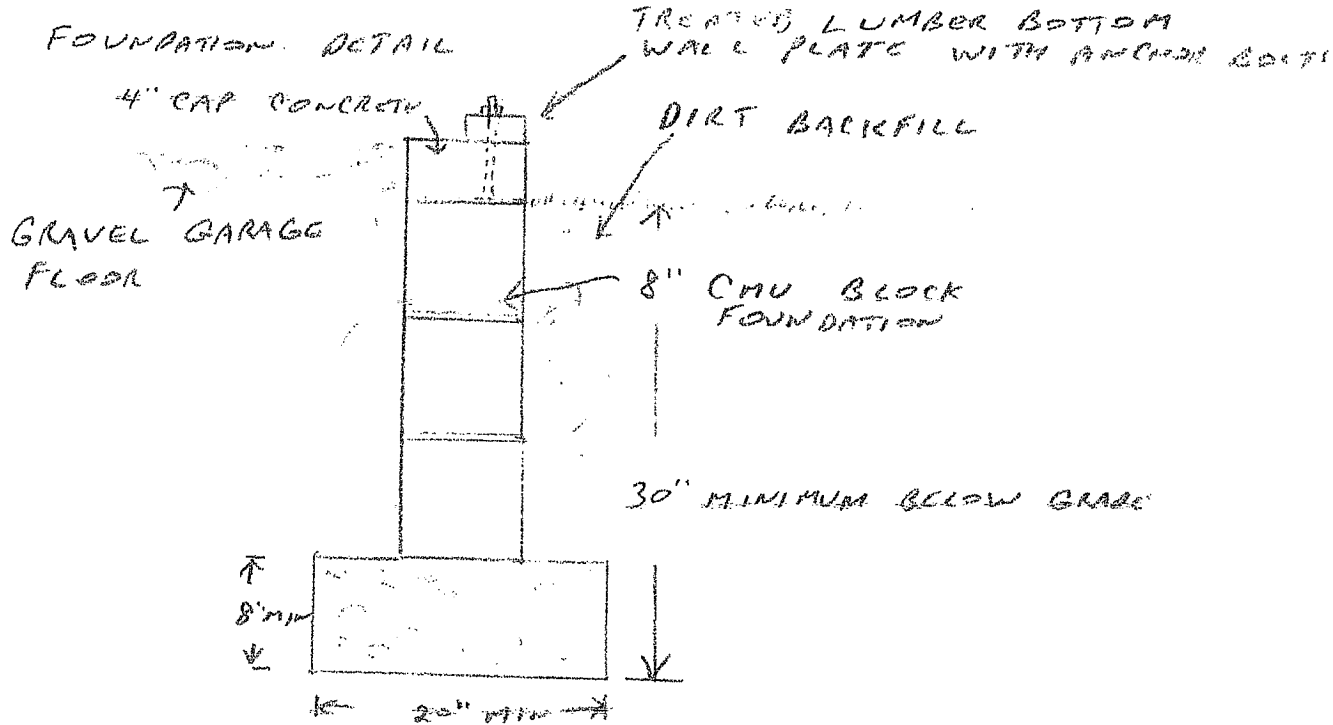 FOUNDATION DETAIL
TREATED LUMBER BOTTOM
WALL PLATE WITH ANCHOR BOLTS
4" CAP CONCRETE
DIRT BACKFILL
GRAVEL GARAGE
FLOOR
8" CMU BLOCK
FOUNDATION
30" MINIMUM BELOW GRADE
8" MIN
20" MIN